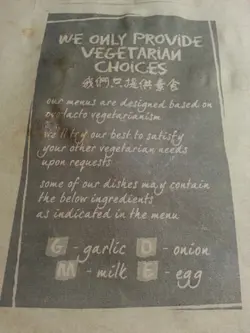 WE ONLY PROVIDE
VEGETARIAN
CHOICES
我們只提供素食
our menus are designed based on
ovo lacto vegetarianism
we'll try our best to satisfy
your other vegetarian needs
upon requests
some of our dishes may contain
the below ingredients
as indicated in the menu
G - garlic O - onion
M - milk E - egg